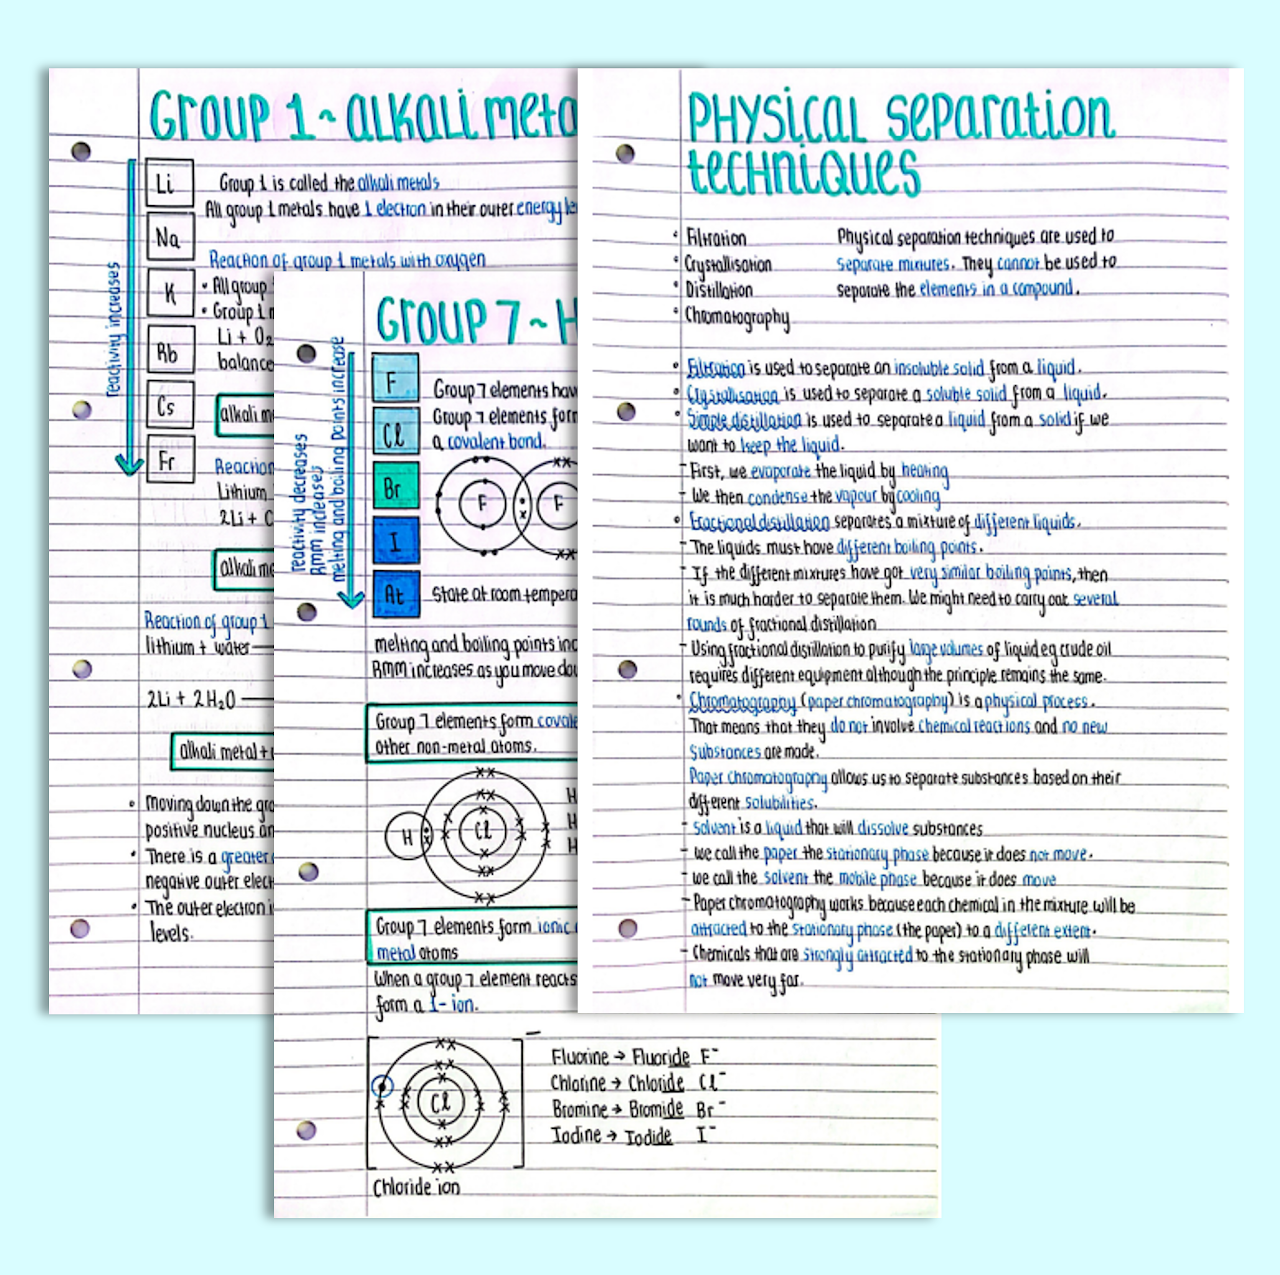 Group 1 ~ alkali meta
Li
Na
K
Rb
Cs
Fr
reactivity increases
Group 1 is called the alkali metals
All group 1 metals have 1 electron in their outer energy le
Reaction of group 1 metals with oxygen
• All group
• Group 1 m
Li + O₂
balance
alkali m
Reaction
Lithium
2Li + C
alkali me
Reaction of group 1
lithium + water
2Li + 2H₂O
alkali metal +
• Moving down the gro
positive nucleus an
• There is a greater
negative outer elect
• The outer electron i
levels.
Group 7 ~ H
F
Cl
Br
I
At
reactivity decreases
RMM increases
melting and boiling points increase
Group 7 elements hav
Group 7 elements for
a covalent bond.
F
F
State at room tempera
melting and boiling points inc
RMM increases as you move do
Group 7 elements form covale
other non-metal atoms.
H
Cl
H
H
H
Group 7 elements form ionic
metal atoms
When a group 7 element reacts
form a 1- ion.
Cl
−
Chloride ion
Fluorine → Fluoride F⁻
Chlorine → Chloride Cl⁻
Bromine → Bromide Br⁻
Iodine → Iodide I⁻
PHYSICAL Separation
techniques
• Filtration
• Crystallisation
• Distillation
• Chromatography
Physical separation techniques are used to
separate mixtures. They cannot be used to
separate the elements in a compound.
• Filtration is used to separate an insoluble solid from a liquid.
• Crystallisation is used to separate a soluble solid from a liquid.
• Simple distillation is used to separate a liquid from a solid if we
want to keep the liquid.
- First, we evaporate the liquid by heating
- We then condense the vapour by cooling
• Fractional distillation separates a mixture of different liquids.
- The liquids must have different boiling points.
- If the different mixtures have got very similar boiling points, then
it is much harder to separate them. We might need to carry out several
rounds of fractional distillation
- Using fractional distillation to purify large volumes of liquid eg crude oil
requires different equipment although the principle remains the same.
• Chromatography (paper chromatography) is a physical process.
That means that they do not involve chemical reactions and no new
Substances are made.
Paper chromatography allows us to separate substances based on their
different solubilities.
- Solvent is a liquid that will dissolve substances
- we call the paper the stationary phase because it does not move.
- we call the solvent the mobile phase because it does move
- Paper chromatography works because each chemical in the mixture will be
attracted to the stationary phase (the paper) to a different extent.
- Chemicals that are strongly attracted to the stationary phase will
not move very far.